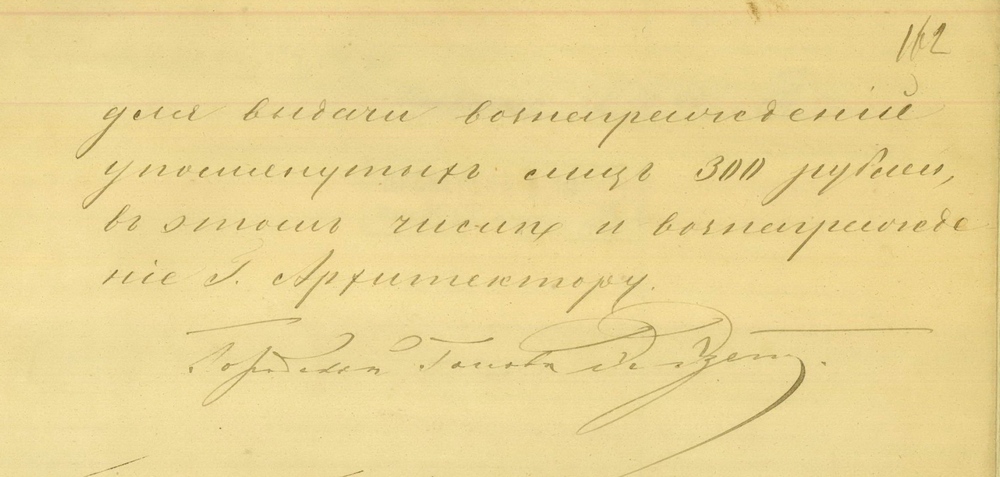 162
для выдачи вознагражденій
упомянутыхъ лицъ 300 рублей,
въ этомъ числѣ и вознагражде
ніе Г. Архитектору.
Городской Голова